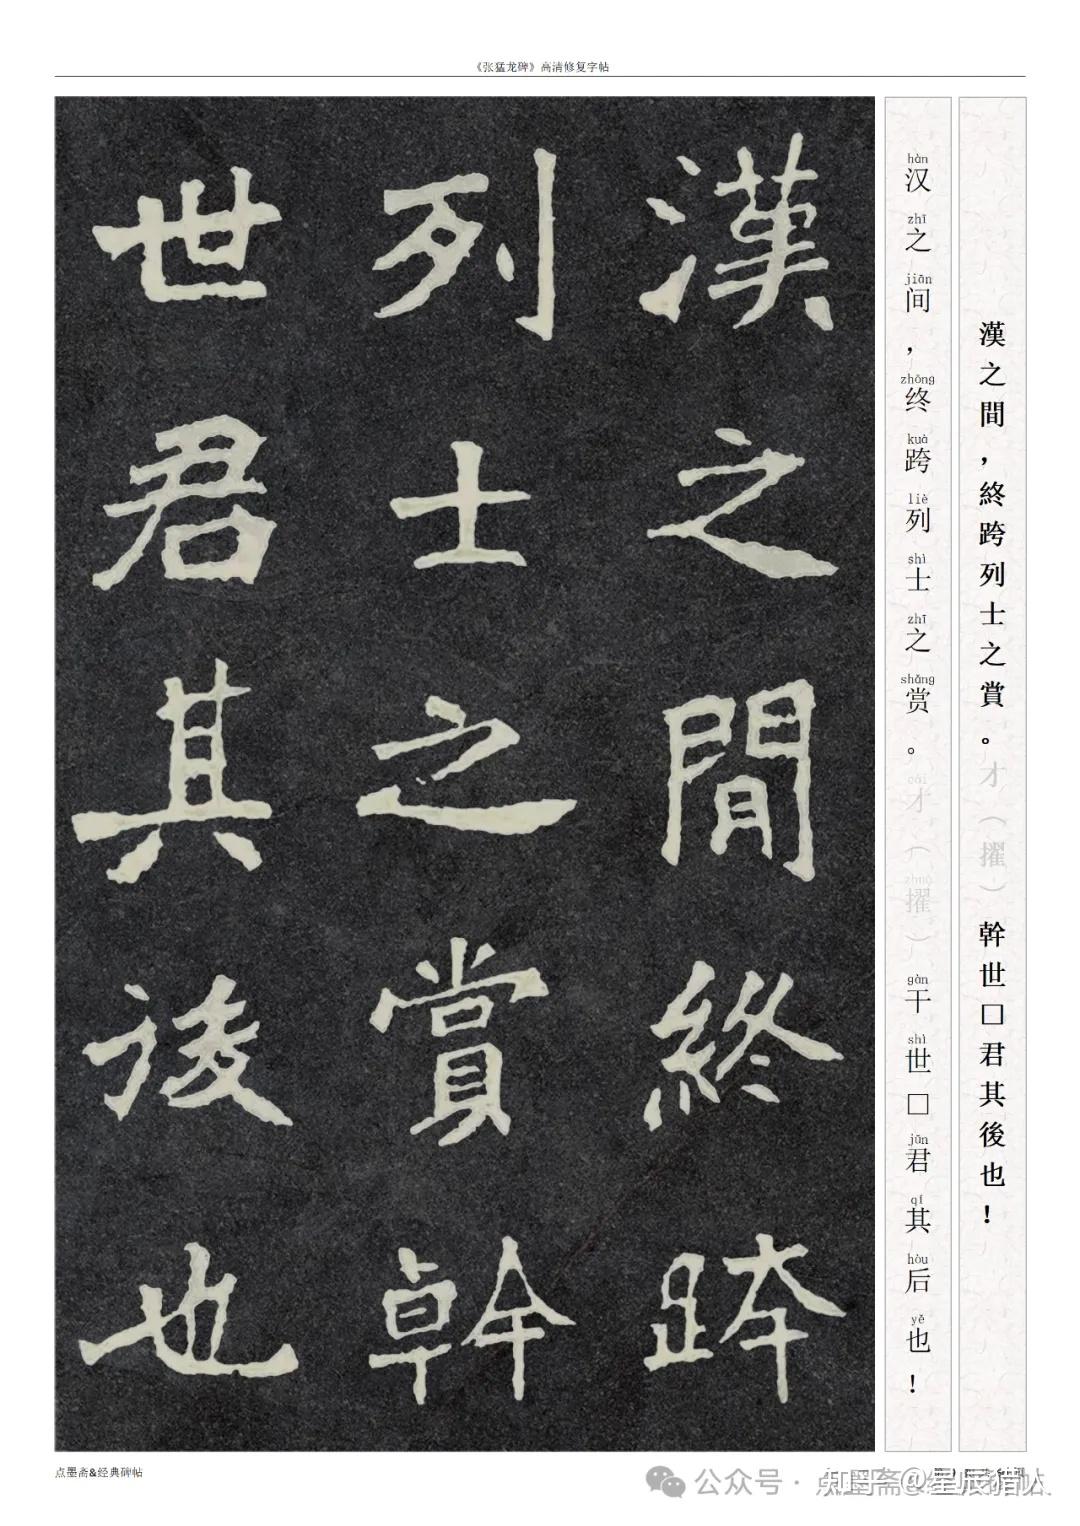 《张猛龙碑》高清修复字帖
漢之間，終跨列士之賞。才（擢）幹世□君其後也！
hàn zhī jiān zhōng kuà liè shì zhī shǎng cái zhuó gàn shì jūn qí hòu yě
汉之间，终跨列士之赏。才（擢）干世□君其后也！
漢之間終跨
列士之賞幹
世君其後也
点墨斋&经典碑帖
公众号·点墨斋
知乎 @星辰猎人